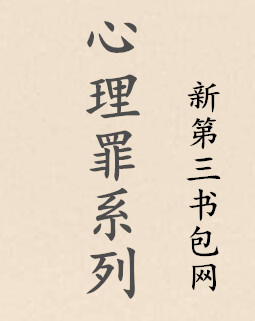 心理罪系列
新第三书包网